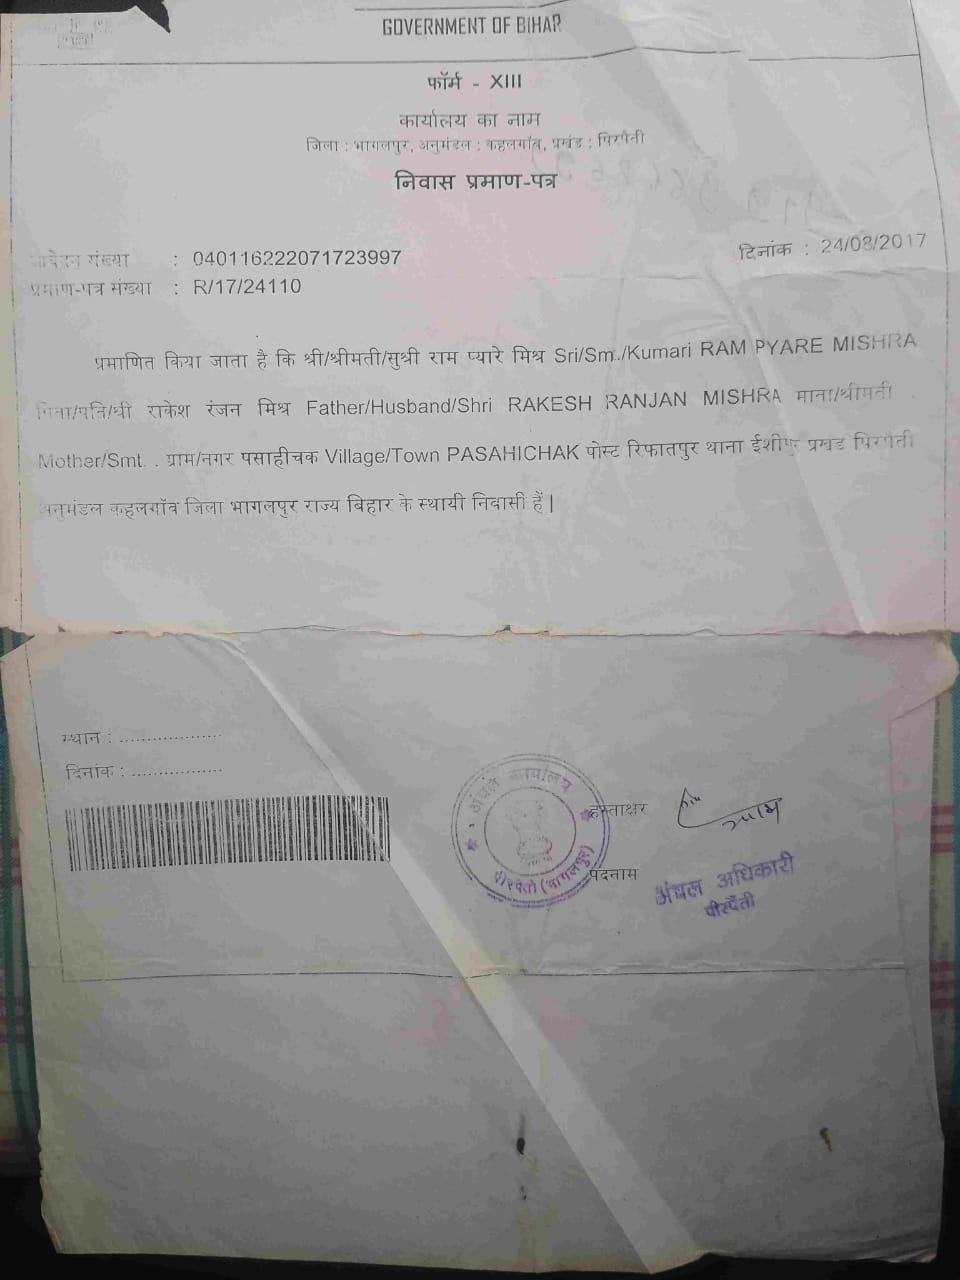 GOVERNMENT OF BIHAR
फॉर्म - XIII
कार्यालय का नाम
जिला : भागलपुर, अनुमंडल : कहलगाँव, प्रखंड : पिरपैंती
निवास प्रमाण-पत्र
आवेदन संख्या : 040116222071723997
दिनांक : 24/08/2017
प्रमाण-पत्र संख्या : R/17/24110
प्रमाणित किया जाता है कि श्री/श्रीमती/सुश्री राम प्यारे मिश्र Sri/Sm./Kumari RAM PYARE MISHRA
पिता/पति/श्री राकेश रंजन मिश्र Father/Husband/Shri RAKESH RANJAN MISHRA माता/श्रीमती
Mother/Smt. . ग्राम/नगर पसाहीचक Village/Town PASAHICHAK पोस्ट रिफातपुर थाना ईशीपुर प्रखंड पिरपैंती
अनुमंडल कहलगाँव जिला भागलपुर राज्य बिहार के स्थायी निवासी हैं|
स्थान : ..................
दिनांक : ................
अंचल कार्यालय
पीरपैंती (भागलपुर)
हस्ताक्षर
पदनाम
अंचल अधिकारी
पीरपैंती